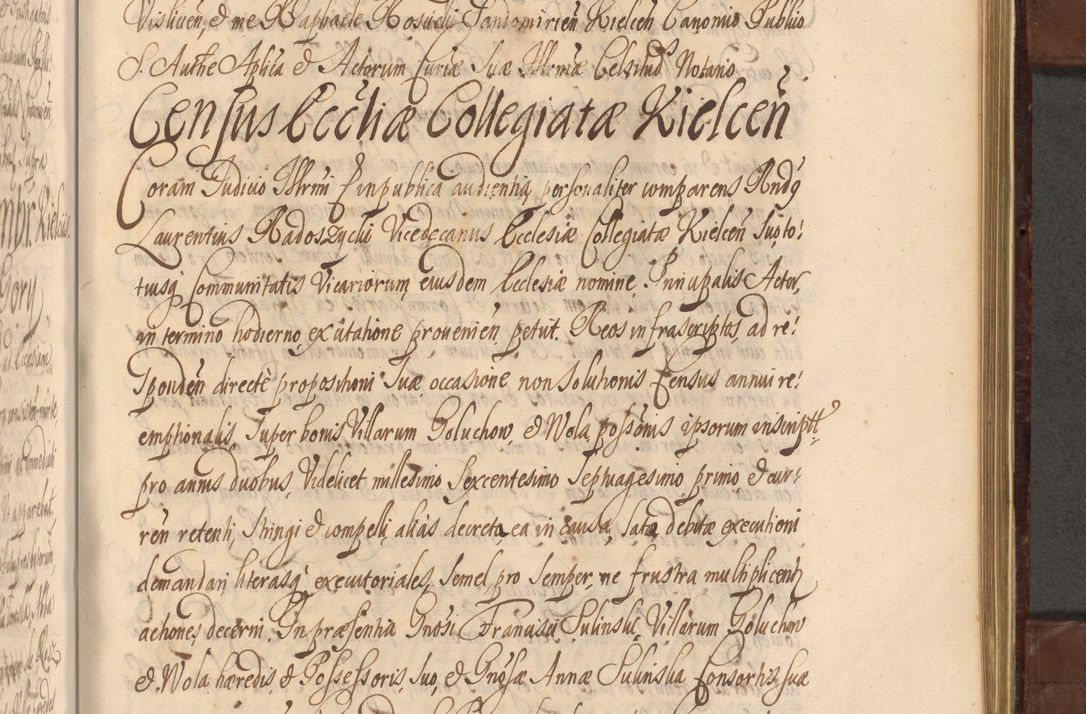 Visliciēn, et me Raphaele Rosucki Sandomirien̄ Kielcen̄ Canonio Publio
S. Authē Aplica et Actorum Curiæ Suæ Illrmæ Celsitud Notario
Censūs Eccliæ Collegiatæ Kielcen̄
Coram Judicio Illrmi E in publica audientia, personaliter comparens Andg
Laurentius Radoszycki Vicedecanus Ecclesiæ Collegiatæ Kielcen̄ suo, to:
tiusq Communitatis Vicariorum, eiusdem Ecclesiæ nomine, Principalis Actor,
in termino hodierno, ex citatione provenien̄, petiit. Reos infrascriptos, ad re:
sponden̄ directè propositioni suæ, occasione, non solutionis Census annui re:
emptionalis, super bonis Villarum Goluchow, et Wola, possōnis ipsorum inscriptt
pro annis duobus, Videlicet millesimo Sexcentesimo Septuagesimo, primo et cur:
ren̄ retenti, stringi et compelli, alias decreta, ea in causa, lata, debitæ executioni
demandari literasq executoriales, semel, pro semper, ne frustra multiplicentr
actiones, decerni. In præsentia Gnosi Francisci Sulinski, Villarum Goluchow
et Wola hæredis, et Possessoris, suo, et Gnōsæ Annæ Sulinska Consortis suæ